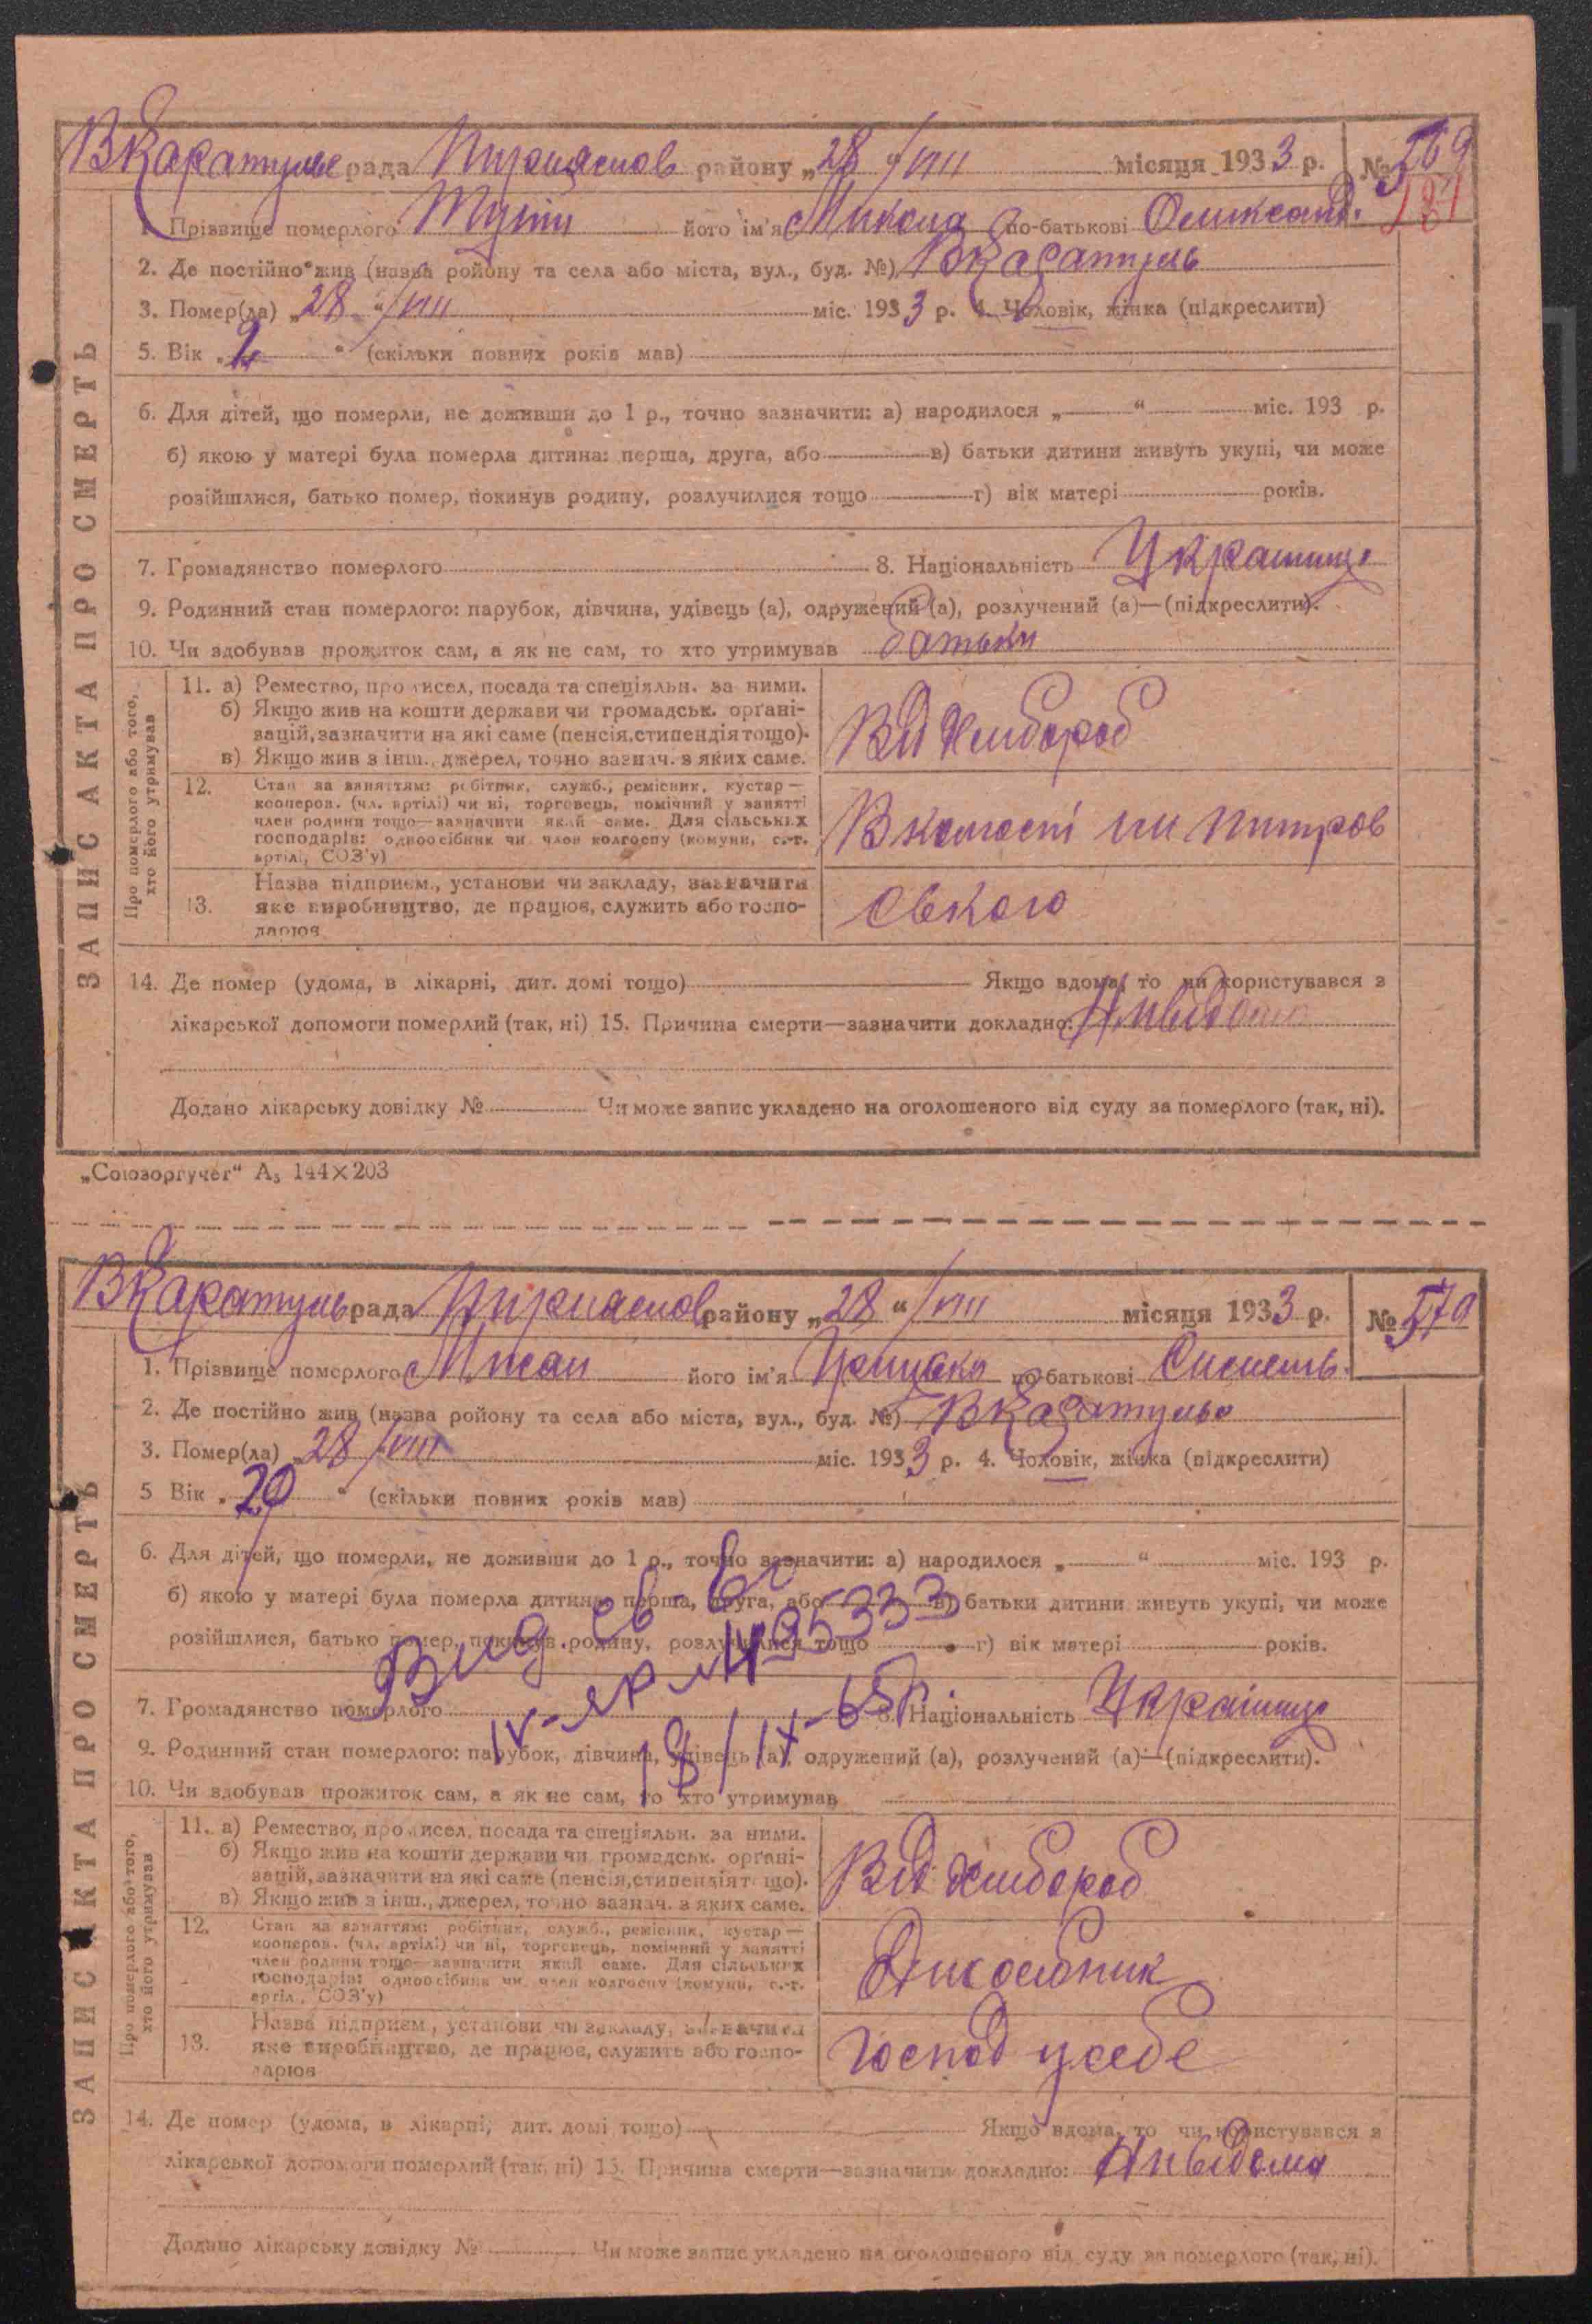 ВКаратуль рада Пириаслов району „28 “/VIII місяця 1933 р. № 569
1. Прізвище померлого його ім'я Микола по-батькові Олександ.
2. Де постійно жив (назва ройону та села або міста, вул., буд. №) ВКаратуль
3. Помер(ла) „28 “/VIII міс. 1933 р. 4. Чоловік, жінка (підкреслити)
5. Вік „2 “ (скільки повних років мав)
6. Для дітей, що померли, не доживши до 1 р., точно зазначити: а) народилося „ “ міс. 193 р.
б) якою у матері була померла дитина: перша, друга, або в) батьки дитини живуть укупі, чи може
розійшлися, батько помер, покинув родину, розлучилися тощо г) вік матері років.
7. Громадянство померлого 8. Національність Украинец
9. Родинний стан померлого: парубок, дівчина, удівець (а), одружений (а), розлучений (а)—(підкреслити).
10. Чи здобував прожиток сам, а як не сам, то хто утримував батьки
ЗАПИС АКТА ПРО СМЕРТЬ
Про померлого або того, хто його утримував
11. а) Ремество, промисел, посада та спеціяльн. за ними.
б) Якщо жив на кошти держави чи громадськ. органі-
зацій, зазначити на які саме (пенсія, стипендія тощо).
в) Якщо жив з інш., джерел, точно зазнач. з яких саме.
Від Хлибороб
12. Стан за заняттям: робітник, служб., ремісник, кустар—
кооперов. (чл. артілі) чи ні, торговець, помічний у занятті
член родини тощо—зазначити який саме. Для сільських
господарів: одноосібник чи член колгоспу (комуни, с.-г.
артілі, СОЗ'у)
В колгоспі им Питров
13. Назва підприєм., установи чи закладу, зазначити
яке виробництво, де працює, служить або госпо-
дарює
ського
14. Де помер (удома, в лікарні, дит. домі тощо) Якщо вдома, то чи користувався з
лікарської допомоги померлий (так, ні) 15. Причина смерти—зазначити докладно: Нивідома
Додано лікарську довідку № Чи може запис укладено на оголошеного від суду за померлого (так, ні).
„Союзоргучет“ А₅ 144×203
ВКаратуль рада Пириаслов району „28 “/VIII місяця 1933 р. № 570
1. Прізвище померлого його ім'я Грицько по-батькові
2. Де постійно жив (назва ройону та села або міста, вул., буд. №) ВКаратуль
3. Помер(ла) „28 /VIII міс. 1933 р. 4. Чоловік, жінка (підкреслити)
5 Вік „29 “ (скільки повних років мав)
6. Для дітей, що померли, не доживши до 1 р., точно зазначити: а) народилося „ “ міс. 193 р.
б) якою у матері була померла дитина: перша, друга, або в) батьки дитини живуть укупі, чи може
розійшлися, батько помер, покинув родину, розлучилися тощо г) вік матері років.
Вид. св-во
IV-ЯР № 495333
18/IX-65р.
7. Громадянство померлого 8. Національність Украінец
9. Родинний стан померлого: парубок, дівчина, удівець (а), одружений (а), розлучений (а)—(підкреслити).
10. Чи здобував прожиток сам, а як не сам, то хто утримував
ЗАПИС АКТА ПРО СМЕРТЬ
Про померлого або того, хто його утримував
11. а) Ремество, промисел, посада та спеціяльн. за ними.
б) Якщо жив на кошти держави чи громадськ. органі-
зацій, зазначити на які саме (пенсія, стипендія тощо).
в) Якщо жив з інш., джерел, точно зазнач. з яких саме.
Від Хлибороб
12. Стан за заняттям: робітник, служб., ремісник, кустар—
кооперов. (чл. артілі) чи ні, торговець, помічний у занятті
член родини тощо—зазначити який саме. Для сільських
господарів: одноосібник чи член колгоспу (комуни, с.-г.
артілі, СОЗ'у)
13. Назва підприєм., установи чи закладу, зазначити
яке виробництво, де працює, служить або госпо-
дарює
Господ у себе
14. Де помер (удома, в лікарні, дит. домі тощо) Якщо вдома, то чи користувався з
лікарської допомоги померлий (так, ні) 15. Причина смерти—зазначити докладно: Нивідома
Додано лікарську довідку № Чи може запис укладено на оголошеного від суду за померлого (так, ні).